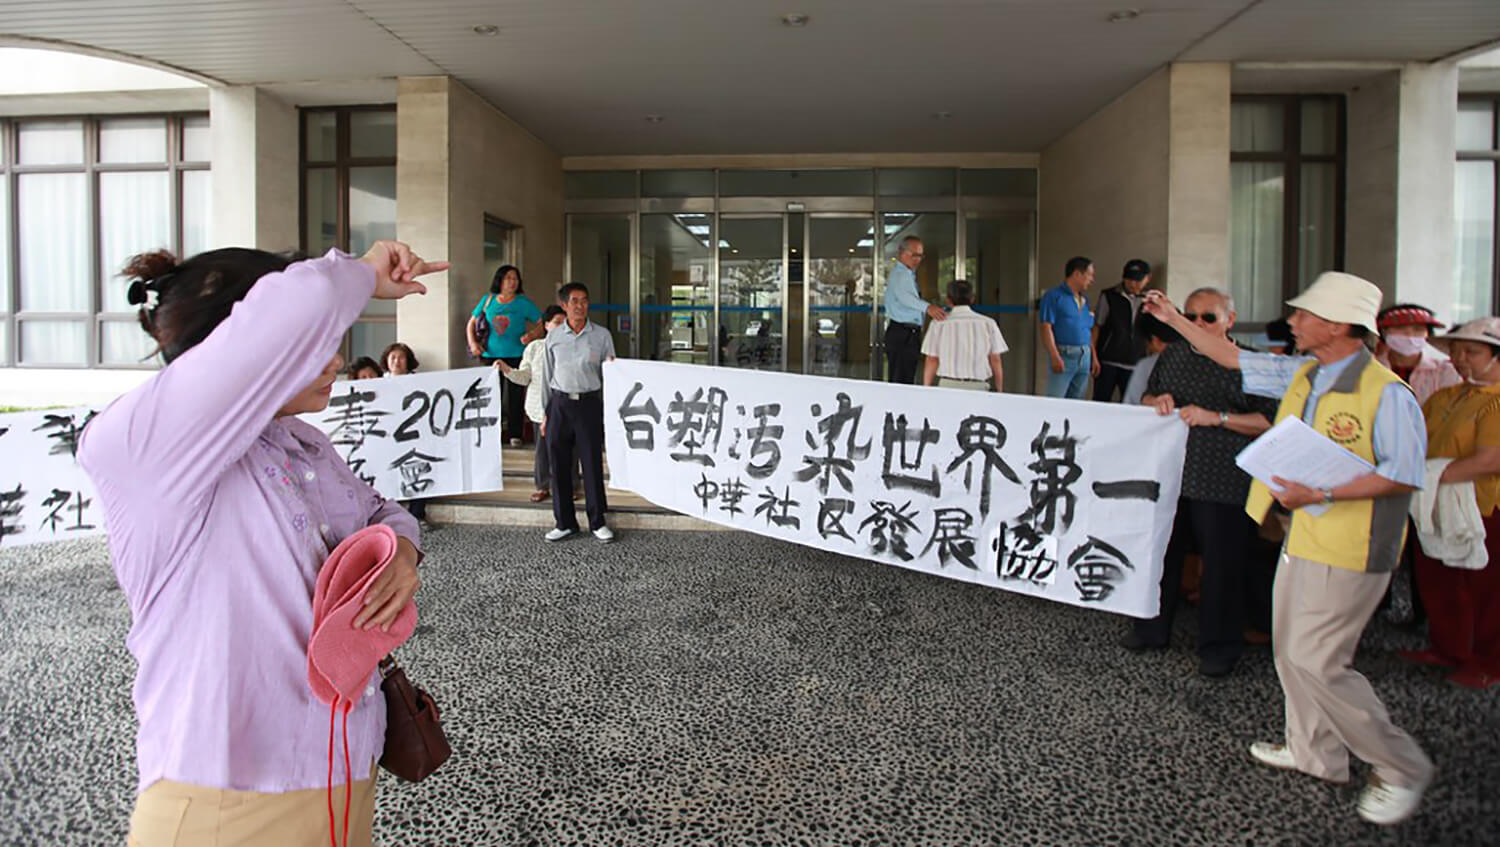 毒20年
會
華社
台塑污染世界第一
中華社区發展協會